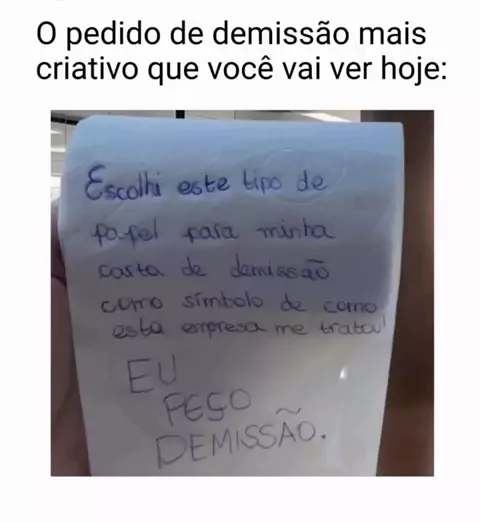 O pedido de demissão mais
criativo que você vai ver hoje:
Escolhi este tipo de
papel para minha
carta de demissão
como símbolo de como
esta empresa me tratou!
EU
PEÇO
DEMISSÃO.